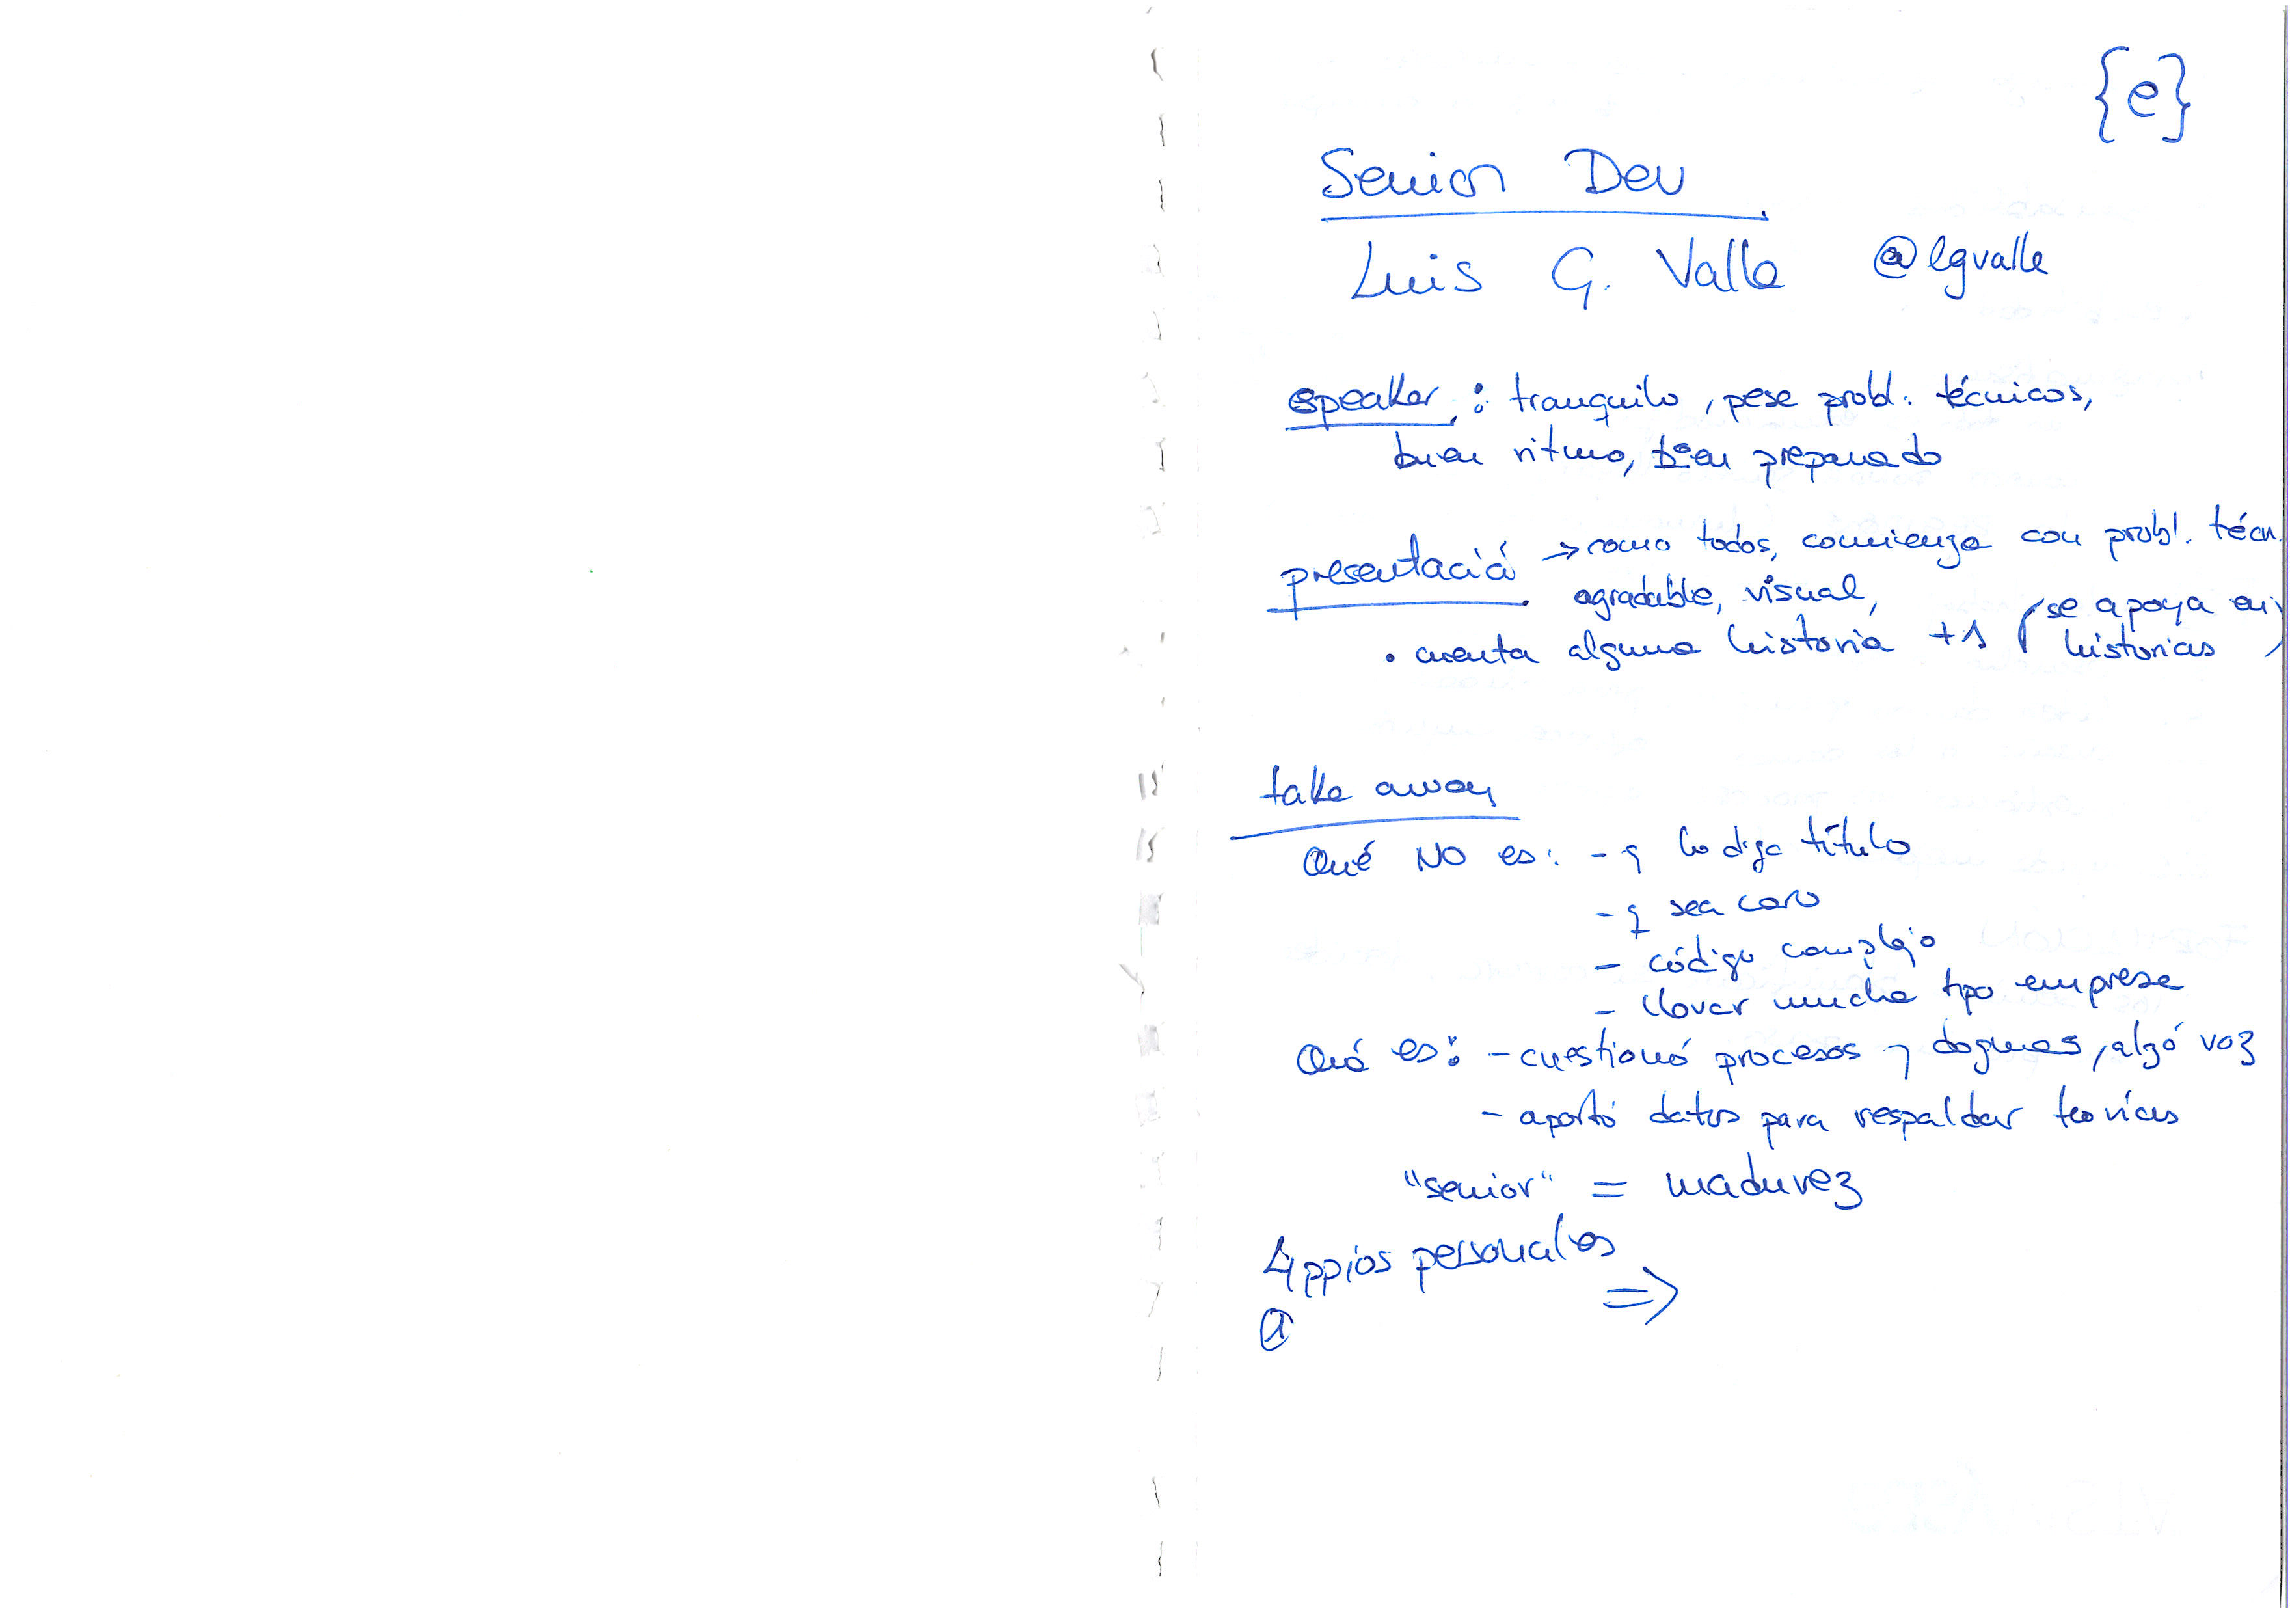 {e}
Senior Dev
Luis G. Valle @lgvalle
speaker: tranquilo, pese probl. técnicos,
buen ritmo, bien preparado
presentació → como todos, comienza con probl. técn.
agradable, visual,
• cuenta alguna historia +1 (se apoya en historias)
take away
Qué NO es: - q lo diga título
- q sea caro
- código complejo
- llevar mucho tpo empresa
Qué es: - cuestionó procesos y dogmas, alzó voz
- aportó datos para respaldar teorías
"senior" = madurez
4 ppios personales
⇒
①